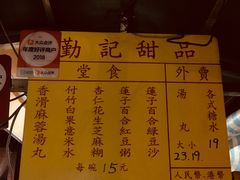 大众点评
年度好评商户
2018
勤記甜品
堂食
外賣
香滑麻蓉湯丸
付竹白果薏米水
杏仁花生芝麻糊
蓮子百合紅豆沙
蓮子百合綠豆沙
每碗15元
湯丸
各式糖水
大小
23.19.
19
人民幣、港幣